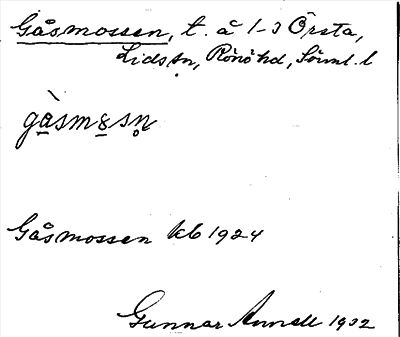 Gåsmossen, t. å 1-3 Örsta,
Lids sn, Rönö hd, Sörml. l
gàsmɞsn̥
Gåsmossen kb 1924
Gunnar 1932